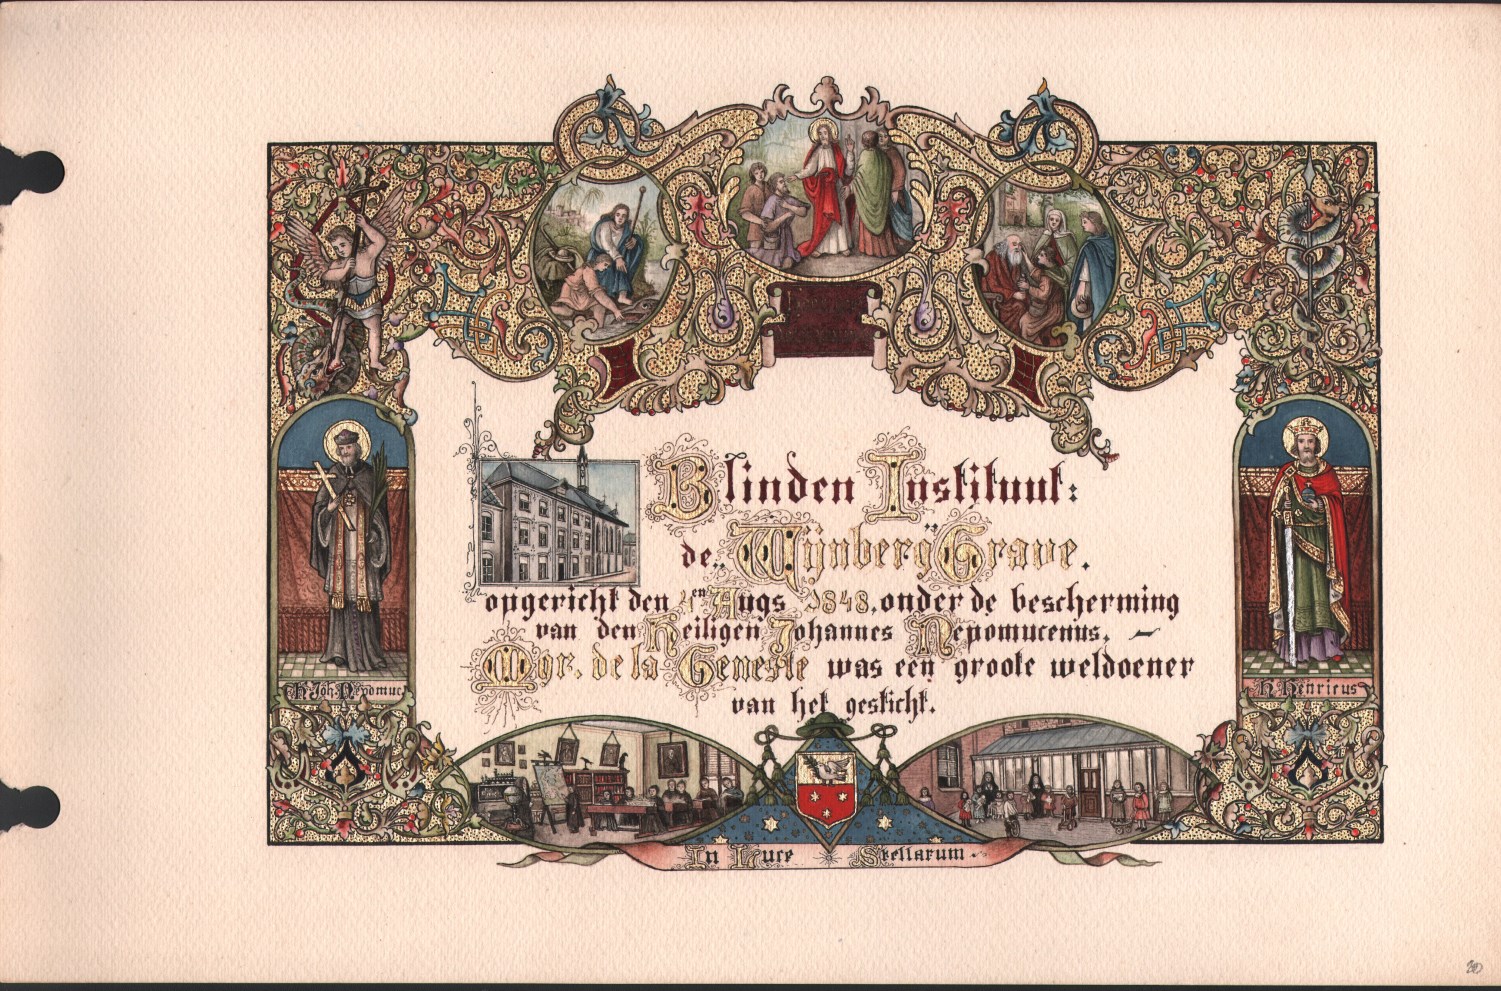 Blinden Instituut:
de „Wijnberg" Grave.
opgericht den en Augs 1848. onder de bescherming
van den Heiligen Johannes Nepomucenus. –
Mgr. de la Geneste was een groote weldoener
van het gesticht.
H. Joh. Nepomuc
H. Henricus
In Luce Stellarum